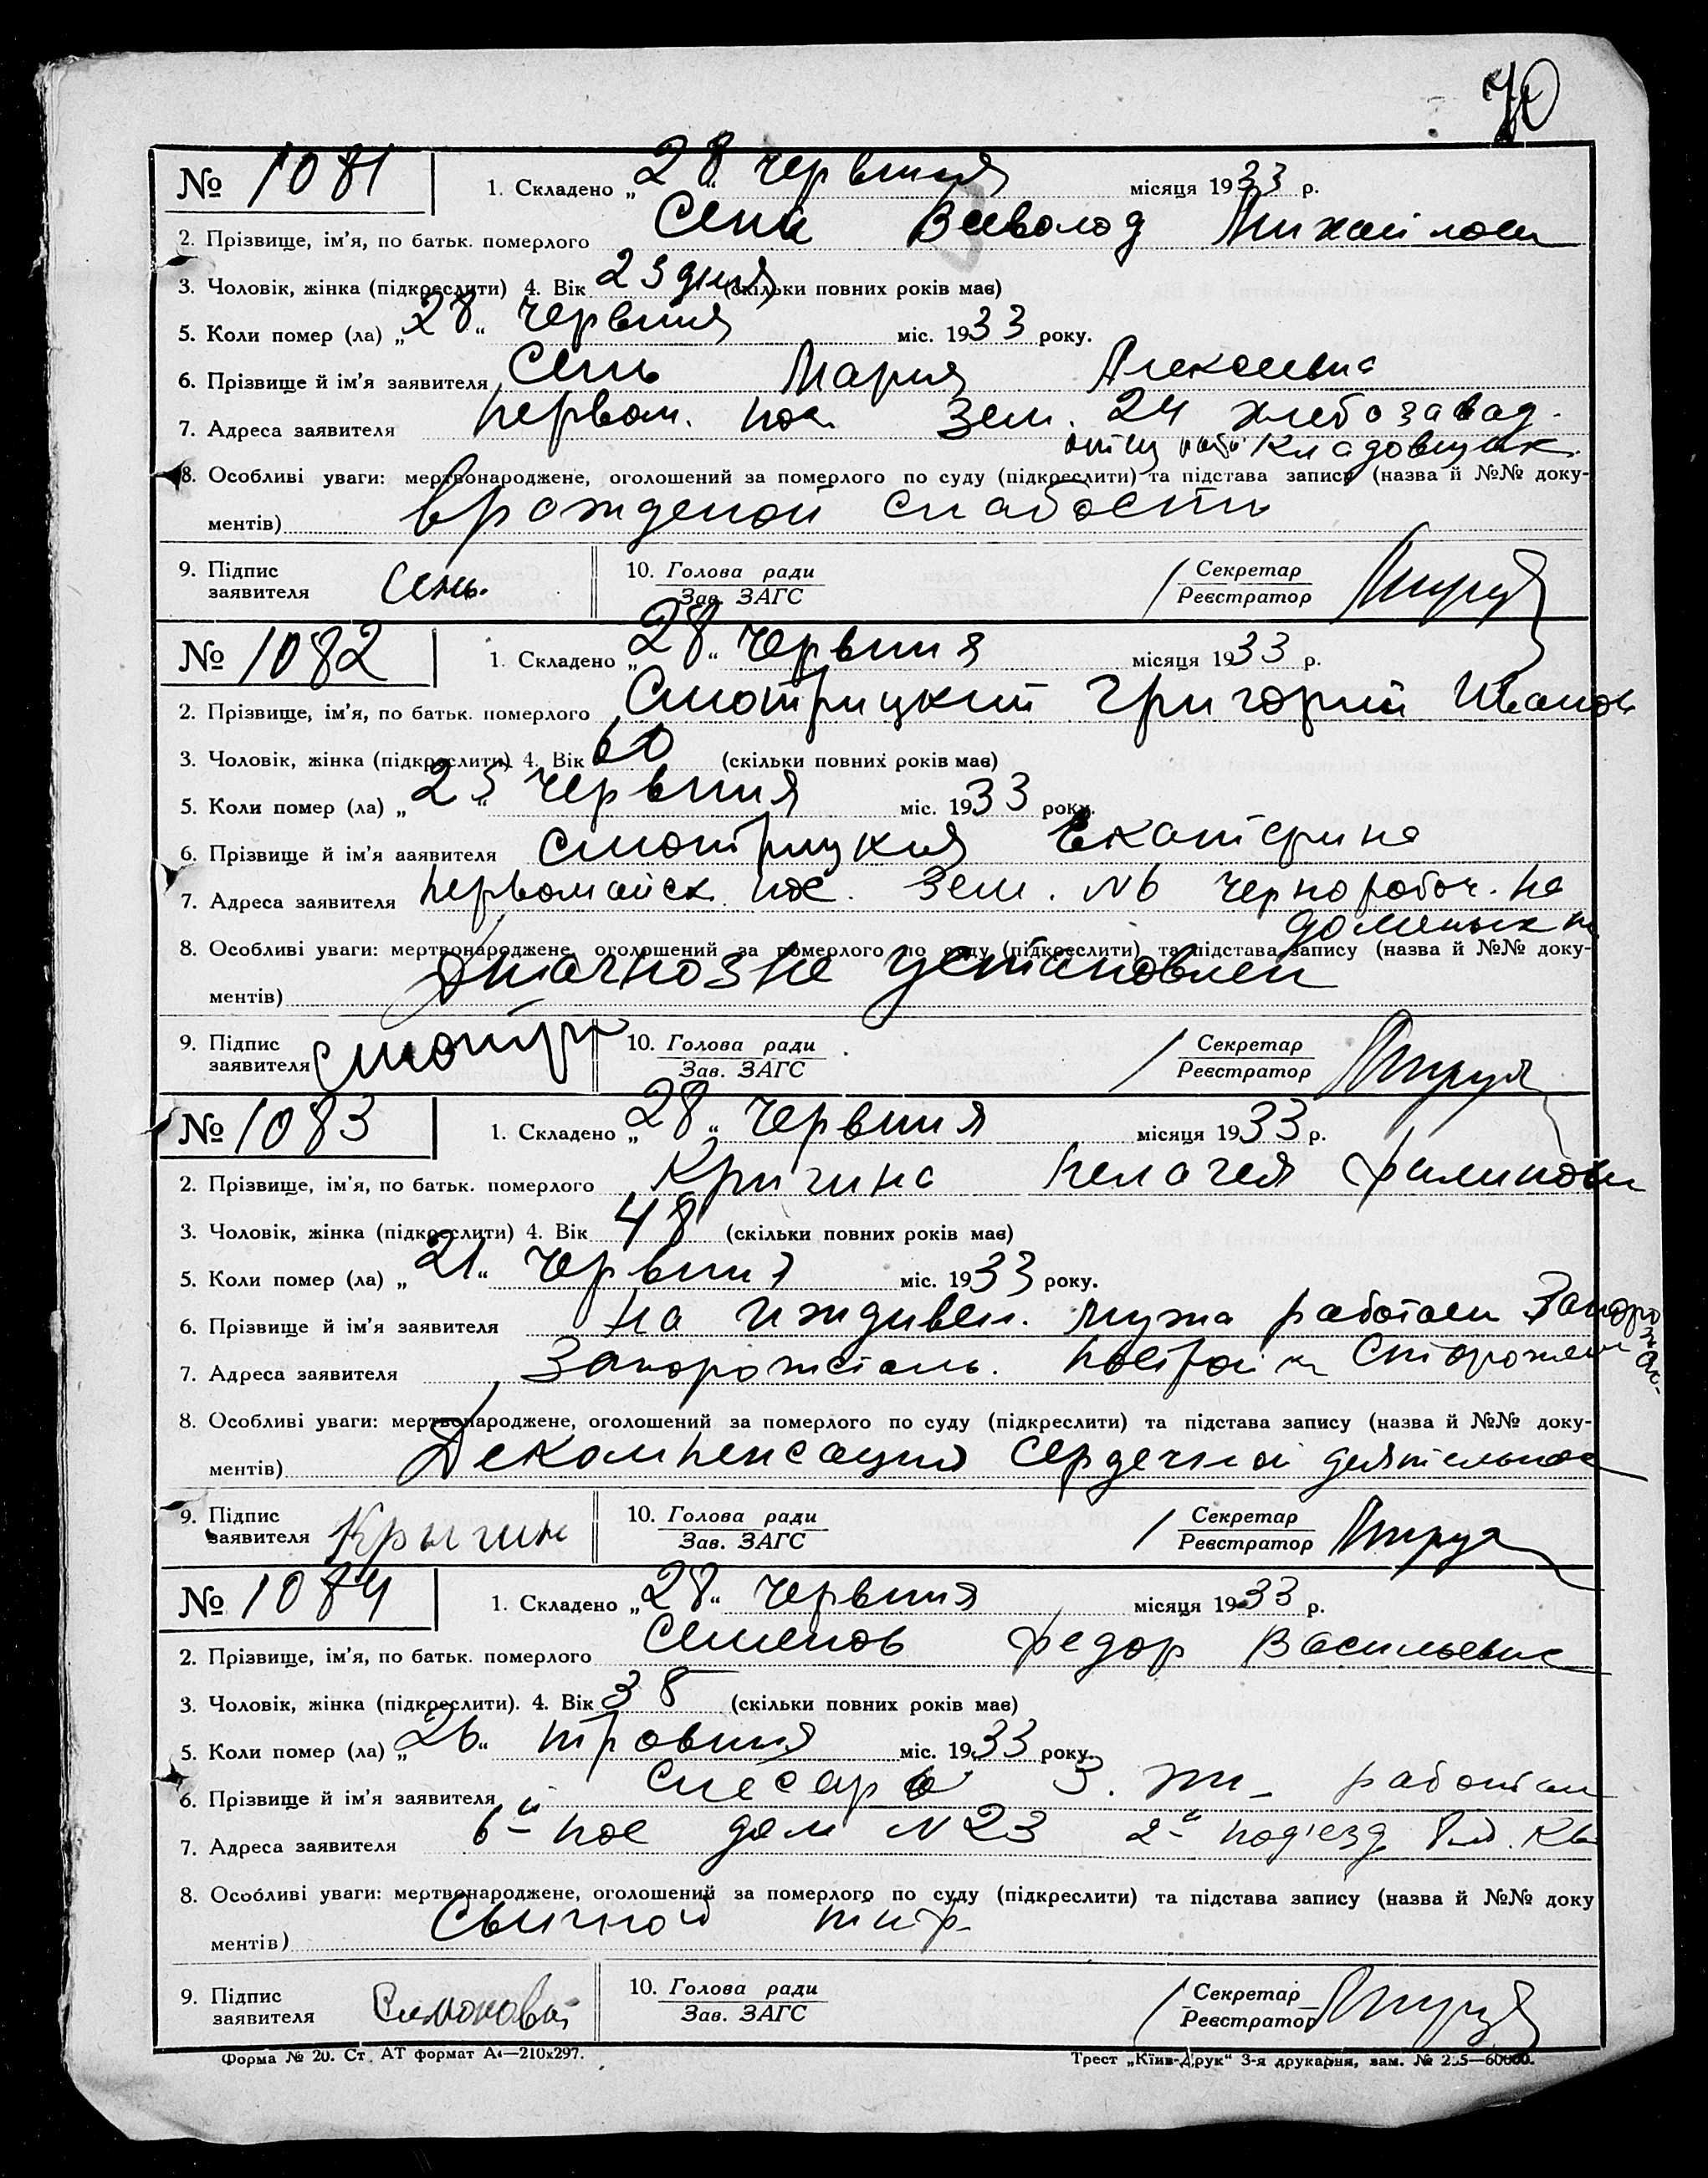 70
№ 1081 1. Складено „28“ червния місяця 1933 р.
2. Прізвище, ім'я, по батьк. померлого Сень Всеволод Михайлов
3. Чоловік, жінка (підкреслити) 4. Вік 23 дня (скільки повних років має)
5. Коли помер (ла) „28“ червния міс. 1933 року.
6. Прізвище й ім'я заявителя Сень Мария Алексеевна
7. Адреса заявителя первом. пос. Зем. 24 хлебозавод.
отец Кладовщик.
8. Особливі уваги: мертвонароджене, оголошений за померлого по суду (підкреслити) та підстава запису (назва й №№ доку-
ментів) врожденой слабости
9. Підпис заявителя Сень. 10. Голова ради Зав. ЗАГС Секретар Реєстратор
№ 1082 1. Складено „28“ червния місяця 1933 р.
2. Прізвище, ім'я, по батьк. померлого Смотрицкий Григорий Иванов
3. Чоловік, жінка (підкреслити) 4. Вік 60 (скільки повних років має)
5. Коли помер (ла) „25“ червния міс. 1933 року.
6. Прізвище й ім'я заявителя Смотрицкия Екатерина
7. Адреса заявителя первомайск. пос. Зем. №6 чернорабоч. на
доменых
8. Особливі уваги: мертвонароджене, оголошений за померлого по суду (підкреслити) та підстава запису (назва й №№ доку-
ментів) Диагноз не установлен
9. Підпис заявителя Смотр 10. Голова ради Зав. ЗАГС Секретар Реєстратор
№ 1083 1. Складено „28“ червния місяця 1933 р.
2. Прізвище, ім'я, по батьк. померлого Кригина Пелагея Филипов
3. Чоловік, жінка (підкреслити) 4. Вік 48 (скільки повних років має)
5. Коли помер (ла) „21“ червния міс. 1933 року.
6. Прізвище й ім'я заявителя На иждивен. мужа работаем
7. Адреса заявителя Запорожсталь. Сторожем
8. Особливі уваги: мертвонароджене, оголошений за померлого по суду (підкреслити) та підстава запису (назва й №№ доку-
ментів) Декомпенсация сердечной деятельнос
9. Підпис заявителя Крыгин 10. Голова ради Зав. ЗАГС Секретар Реєстратор
№ 1084 1. Складено „28“ червния місяця 1933 р.
2. Прізвище, ім'я, по батьк. померлого Семенов Федор Васильевич
3. Чоловік, жінка (підкреслити). 4. Вік 38 (скільки повних років має)
5. Коли помер (ла) „26“ травния міс. 1933 року.
6. Прізвище й ім'я заявителя Слесарь работал
7. Адреса заявителя 6й пос дом №23 2й под'езд кв
8. Особливі уваги: мертвонароджене, оголошений за померлого по суду (підкреслити) та підстава запису (назва й №№ доку
ментів) Сыпной тиф
9. Підпис заявителя 10. Голова ради Зав. ЗАГС Секретар Реєстратор
Форма № 20. Ст. АТ формат А4—210х297. Трест „Київ-Друк“ 3-я друкарня, зам. № 255—60000.